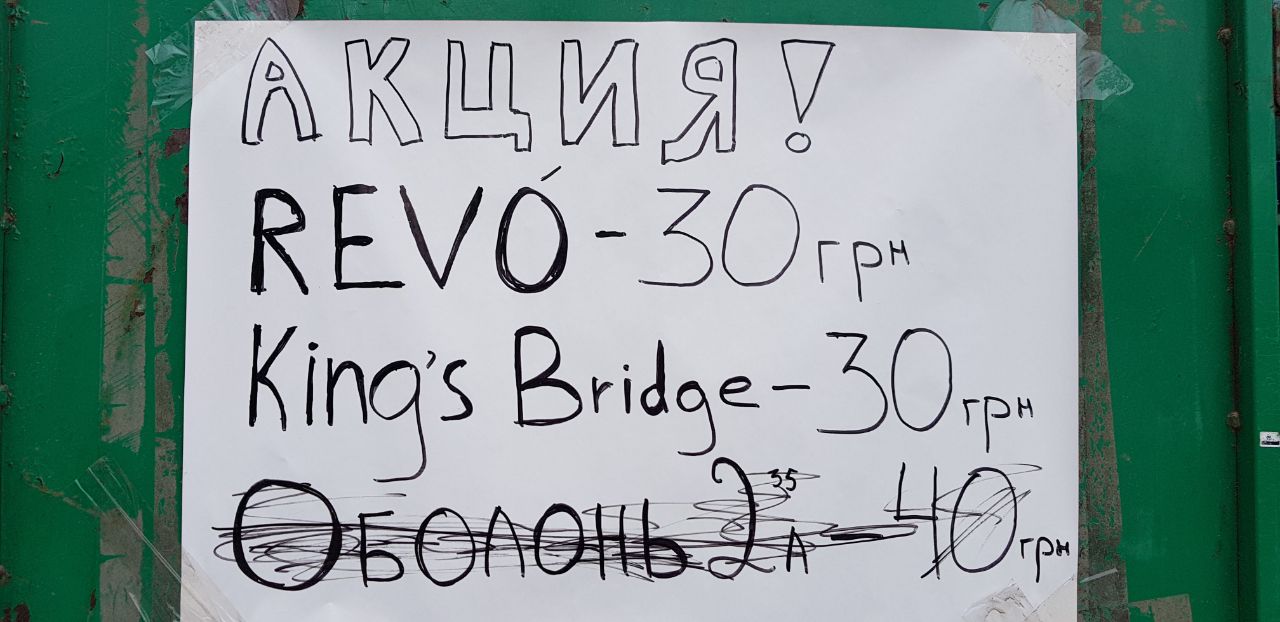 АКЦИЯ!
REVÓ - 30 грн
King's Bridge - 30 грн
Оболонь 2 35 л - 40 грн